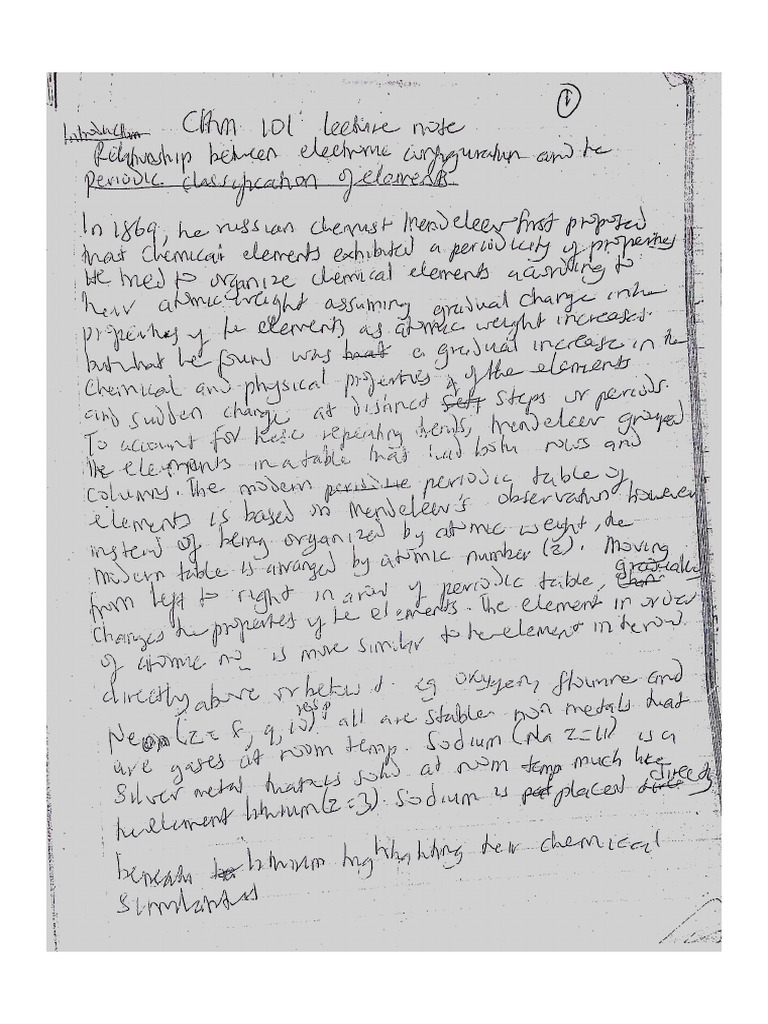 1
Introduction CHM 101 lecture note
Relationship between electronic configuration and the
periodic classification of elements.
In 1869, the russian chemist Mendeleev first proposed
that chemical elements exhibited a periodicity of properties
He tried to organize chemical elements acording to
their atomic weight assuming gradual change in the
properties of the elements, as atomic weight increases.
but what he found was a gradual increase in the
chemical and physical properties of the elements
and sudden change at distinct steps or periods.
To account for these repeating trends, Mendeleev grouped
the elements in a table that had both rows and
columns. The modern periodic table of
elements is based on Mendeleev's observation however
instead of being organized by atomic weight, the
modern table is arranged by atomic number (z). Moving
from left to right in a row of periodic table, gradually
changes the properties of the elements. The element in order
of atomic no is more similar to the element in the row
directly above or below it. eg oxygen, flourine and
Neon (z = 8, 9, 10) resp all are stable non metals that
are gases at room temp. Sodium (Na z=11) is a
silver metal that is solid at room temp much like
the element lithium (z=3). Sodium is placed directly
beneath lithium highlighting their chemical
similarities